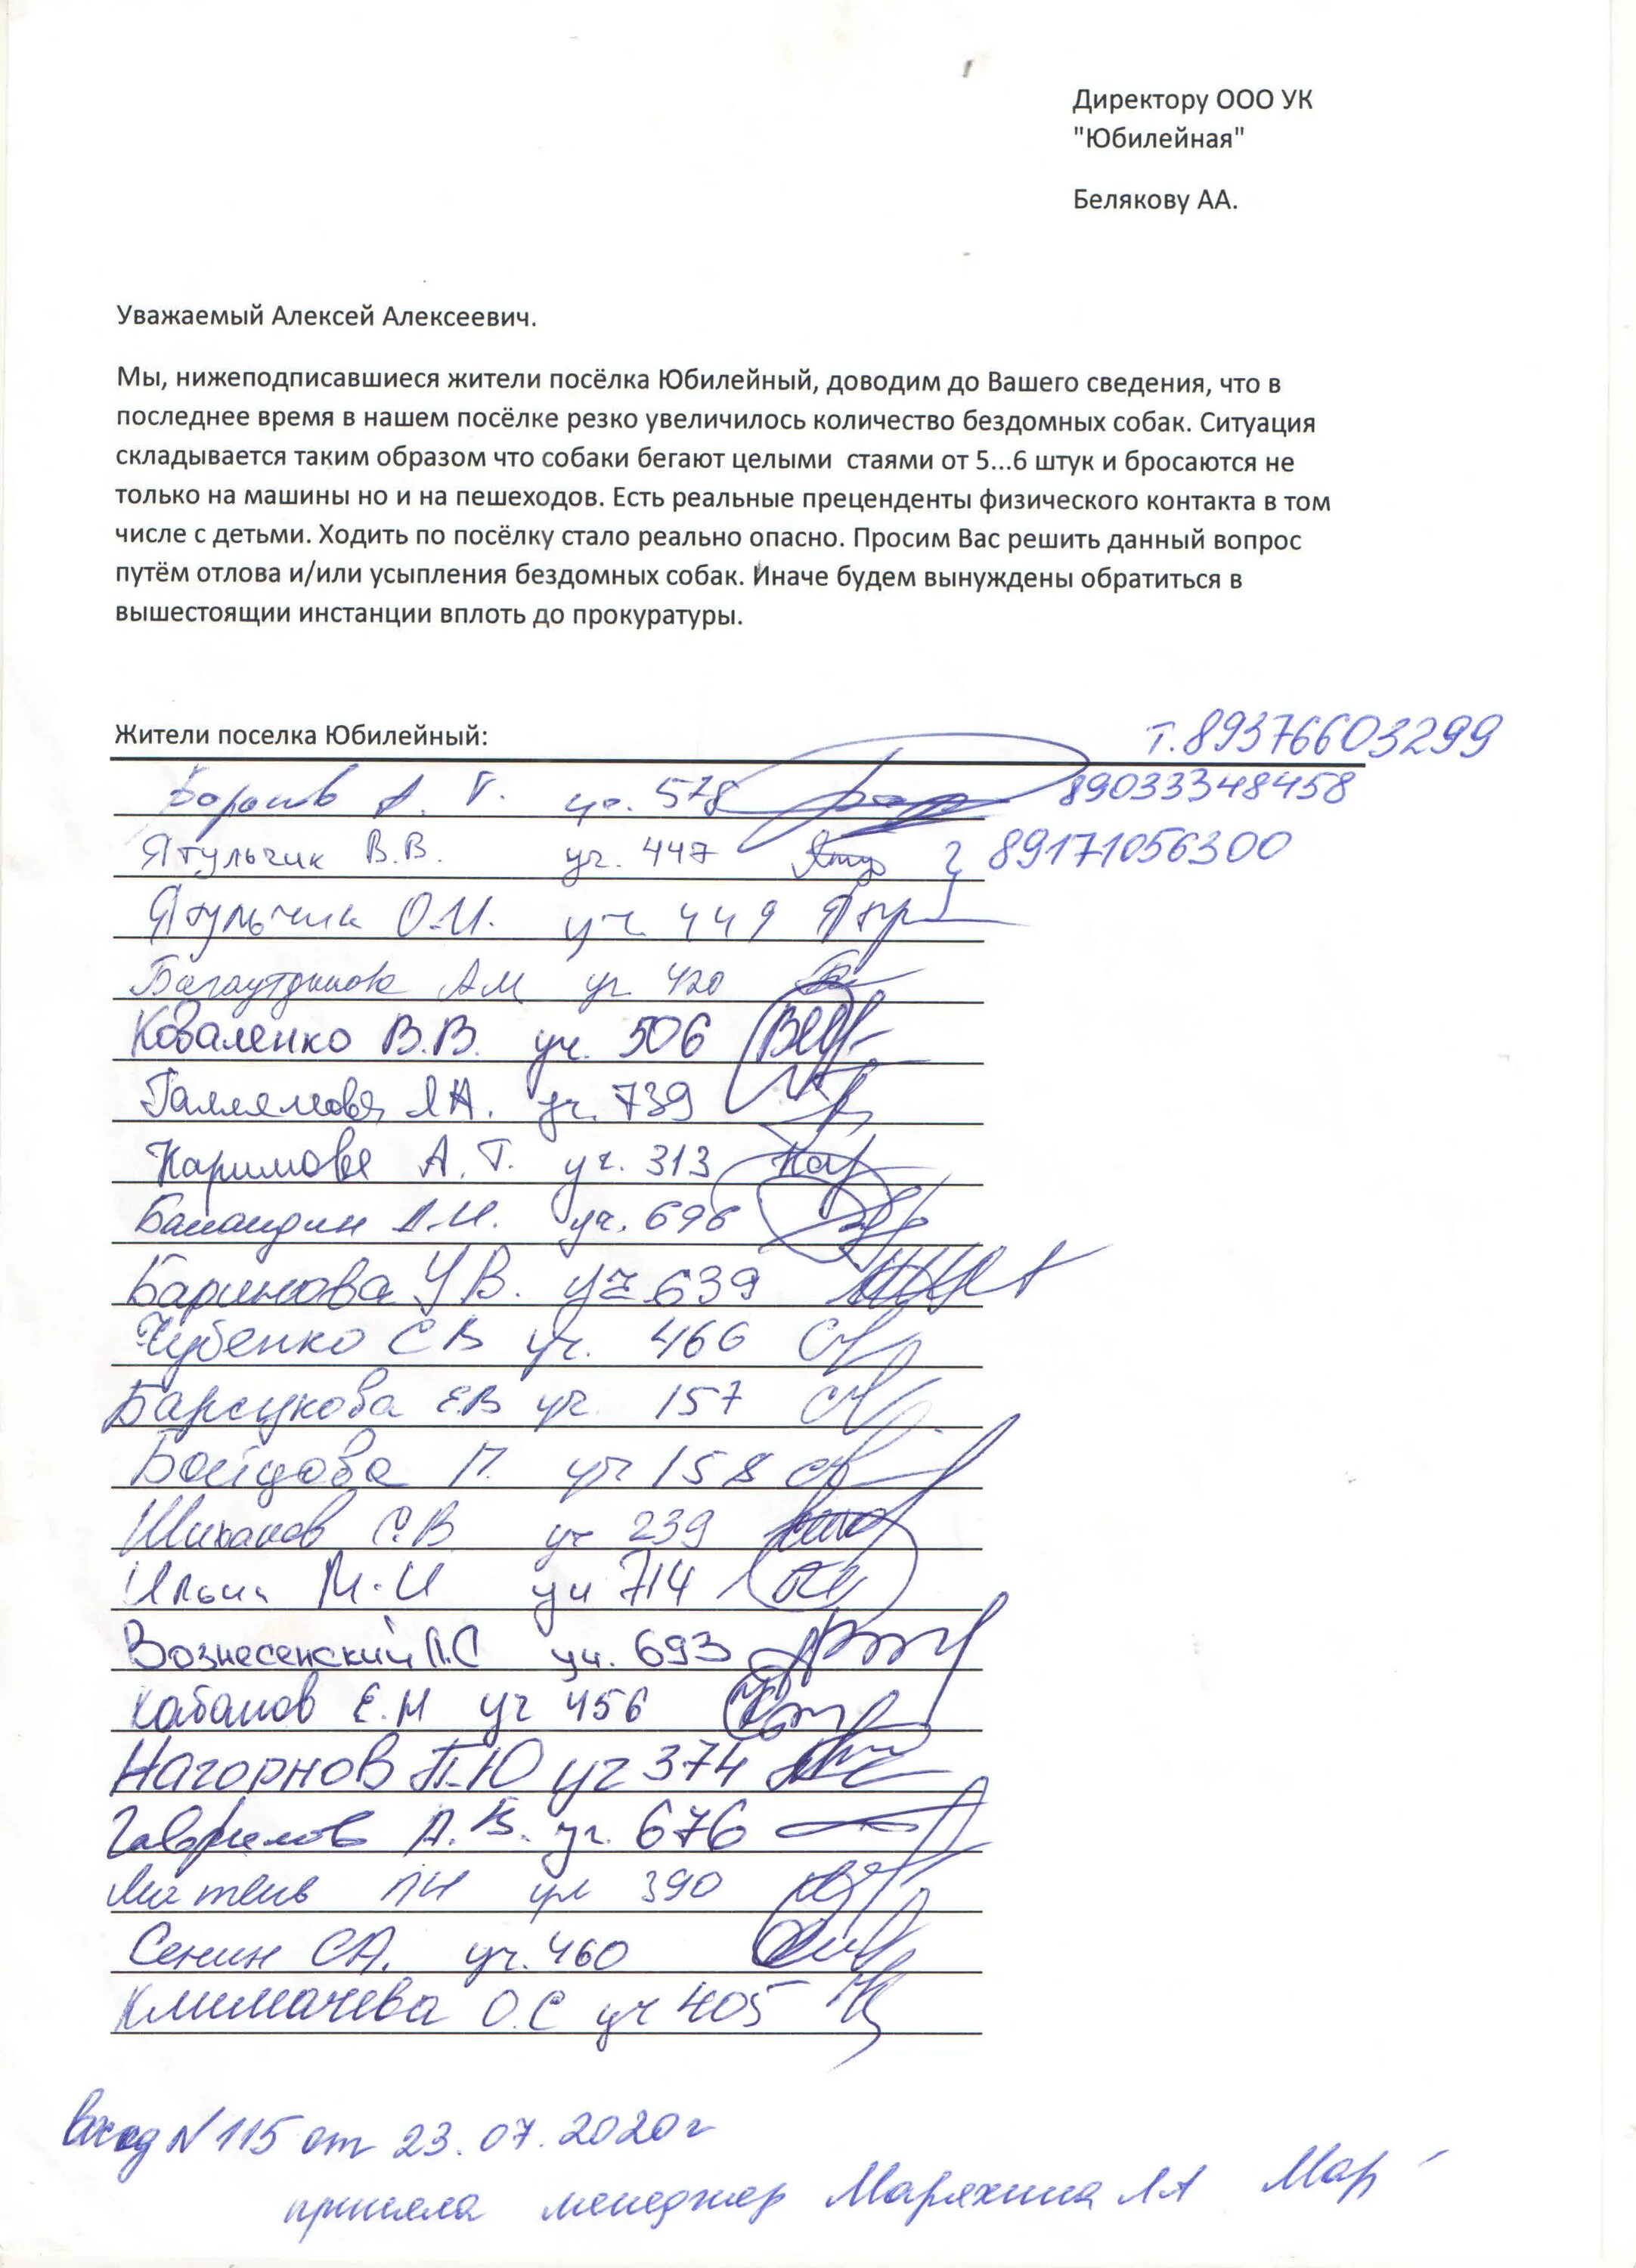 Директору ООО УК
"Юбилейная"
Белякову АА.
Уважаемый Алексей Алексеевич.
Мы, нижеподписавшиеся жители посёлка Юбилейный, доводим до Вашего сведения, что в
последнее время в нашем посёлке резко увеличилось количество бездомных собак. Ситуация
складывается таким образом что собаки бегают целыми стаями от 5...6 штук и бросаются не
только на машины но и на пешеходов. Есть реальные прецеденденты физического контакта в том
числе с детьми. Ходить по посёлку стало реально опасно. Просим Вас решить данный вопрос
путём отлова и/или усыпления бездомных собак. Иначе будем вынуждены обратиться в
вышестоящии инстанции вплоть до прокуратуры.
Жители поселка Юбилейный: т.89376603299
А. Г. уч. 578 89033348458
Ятульчик В.В. уч. 447 89171056300
Ятульчик О.И. уч. 449
Багаутдинова АМ уч 420
Коваленко В.В. уч. 506
Галлямова Л.А. уч. 739
Каримова А.Т. уч. 313
А.И. уч. 696
Баринова У В. уч 639
Чубенко СВ уч. 466
Барсукова ЕВ уч. 157
П. уч 158
Шиханов С.В уч 239
Ильин М.И уч 714
Вознесенский П.С уч. 693
Кабанов Е.Н уч 456
Нагорнов П.Ю уч 374
Гаврилов А.В. уч. 676
390
Сенин СА. уч. 460
Климачева О.С уч 405
вход N 115 от 23.07.2020г
приняла менеджер Маряхина ЛА